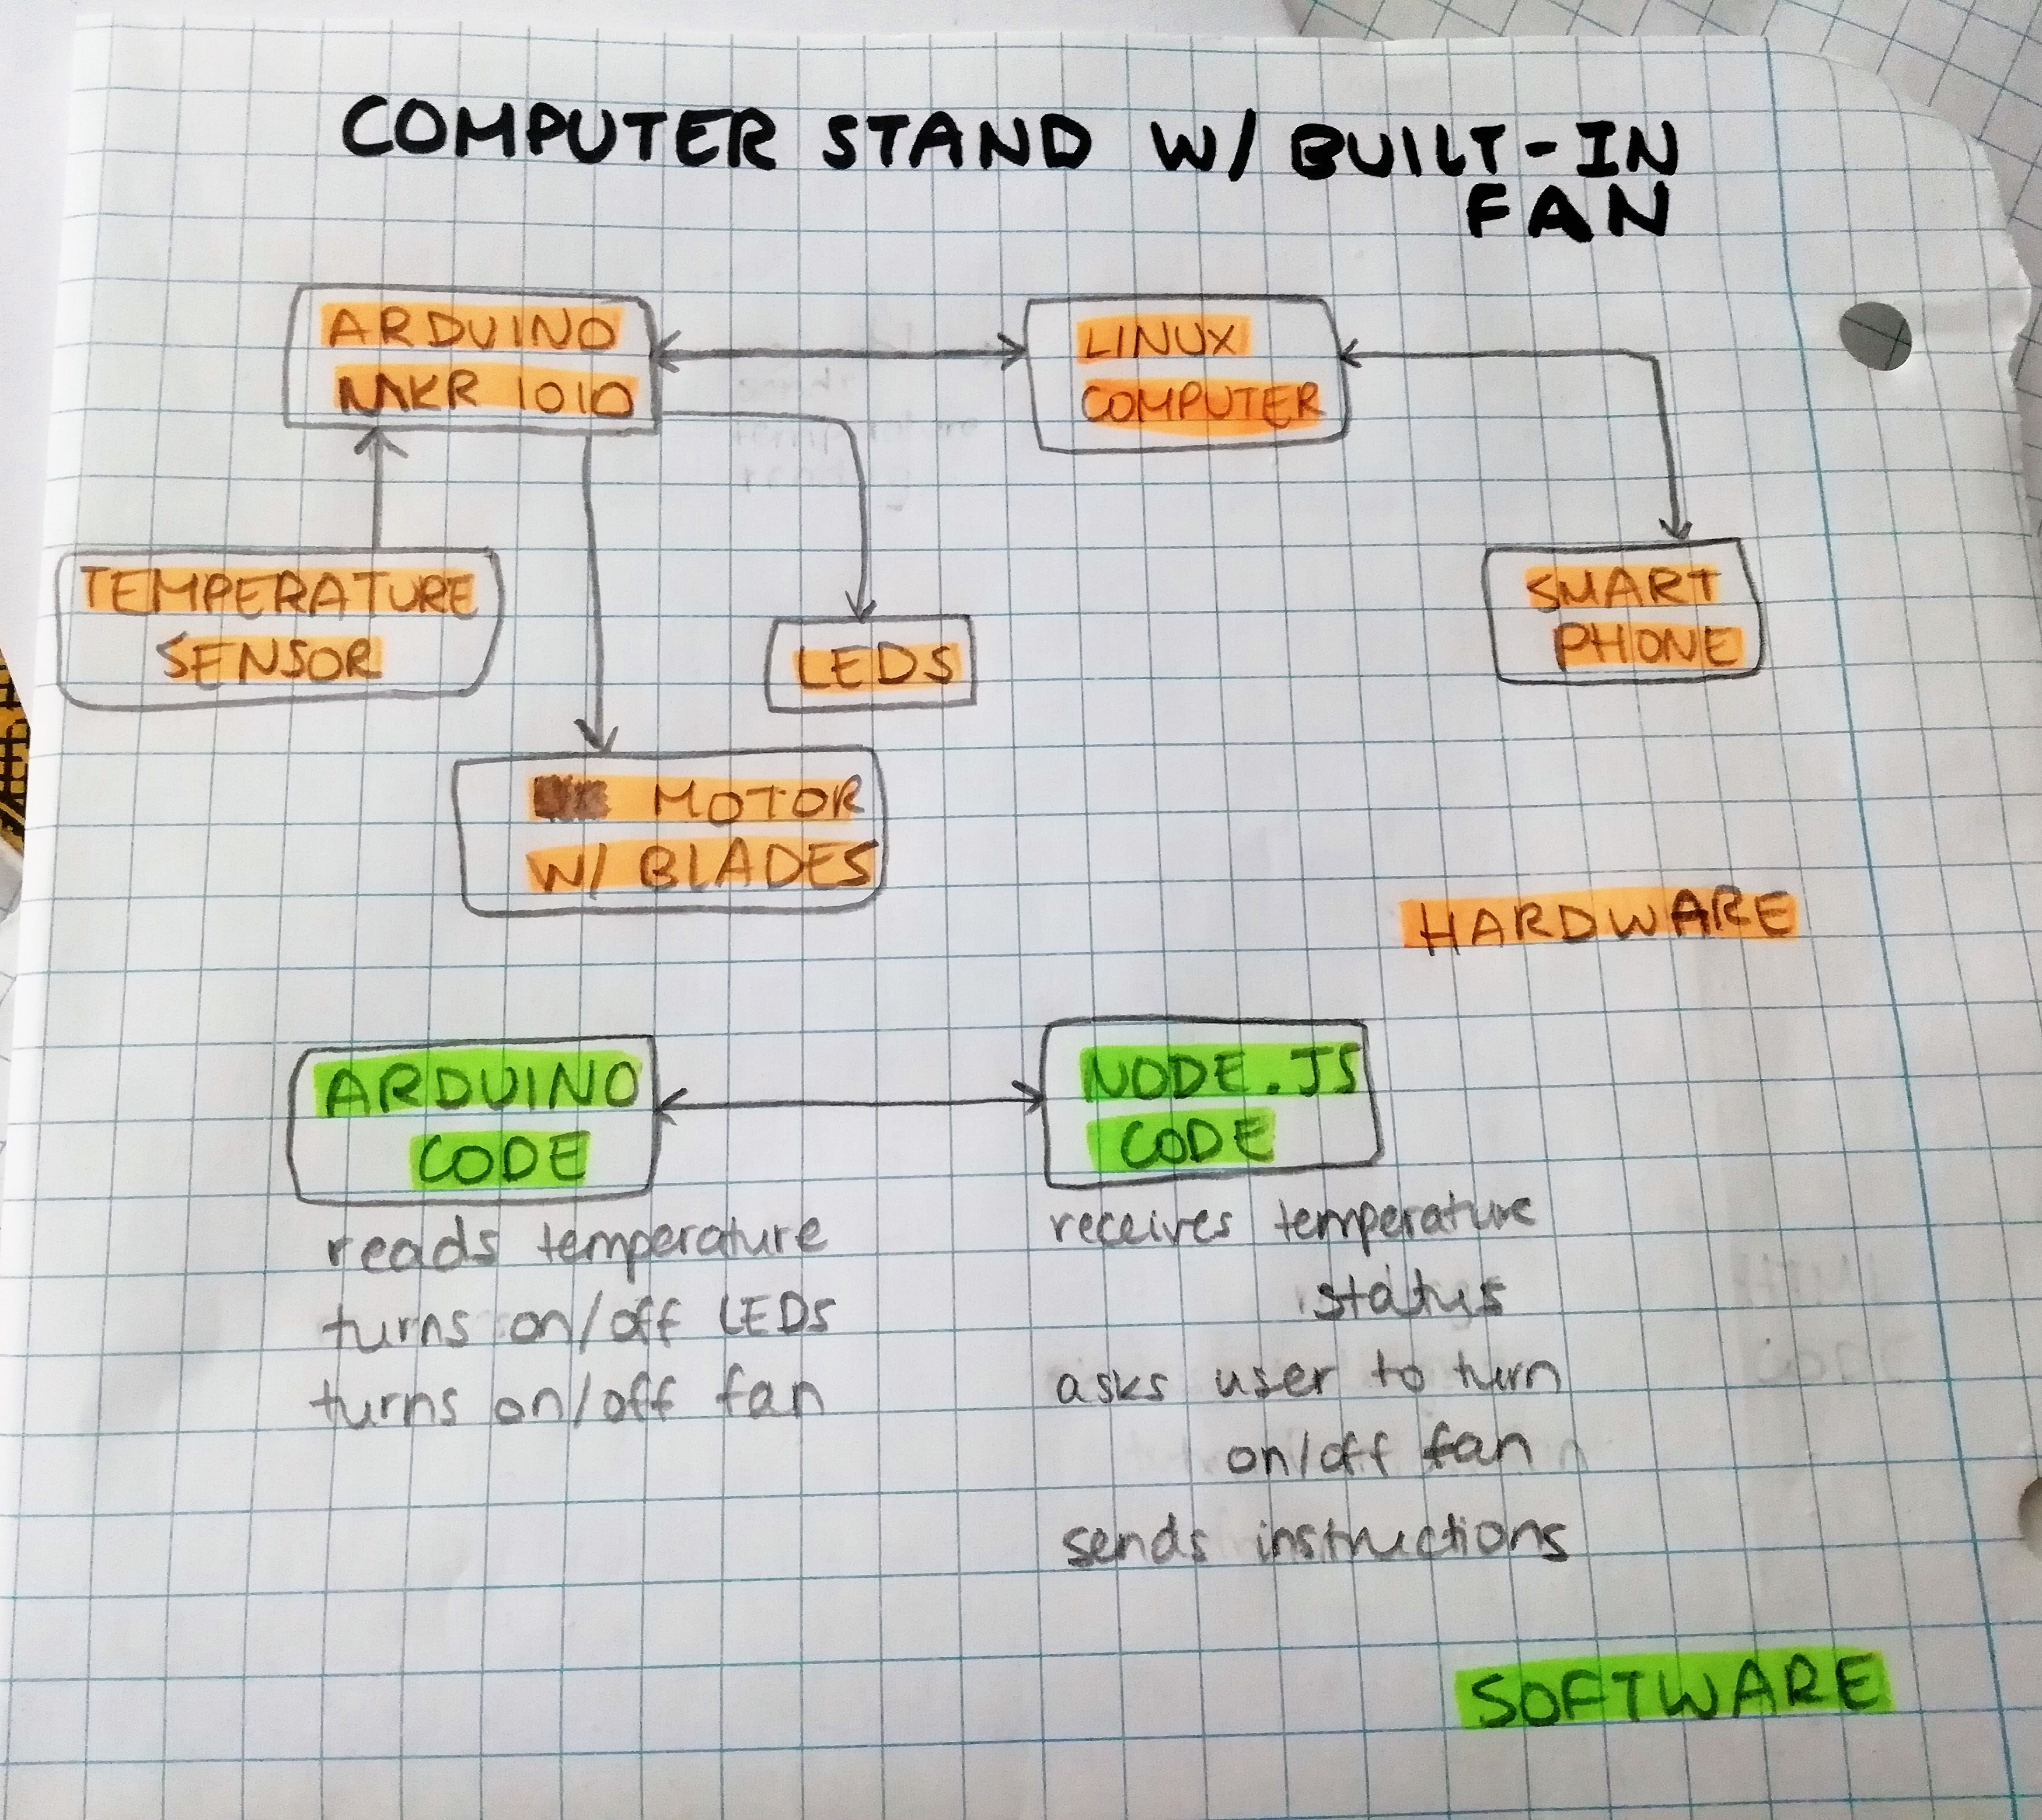 COMPUTER STAND W/ BUILT-IN
FAN
ARDUINO
MKR 1010
LINUX
COMPUTER
TEMPERATURE
SENSOR
LEDS
SMART
PHONE
MOTOR
W/ BLADES
HARDWARE
ARDUINO
CODE
reads temperature
turns on/off LEDs
turns on/off fan
NODE.JS
CODE
receives temperature
status
asks user to turn
on/off fan
sends instructions
SOFTWARE